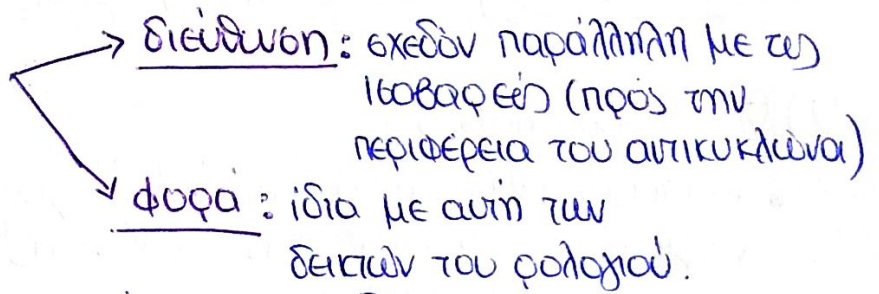 διεύθυνση: σχεδόν παράλληλη με τις
ισοβαρείς (προς την
περιφέρεια του αντικυκλώνα)
φορά: ίδια με αυτή των
δεικτών του ρολογιού.